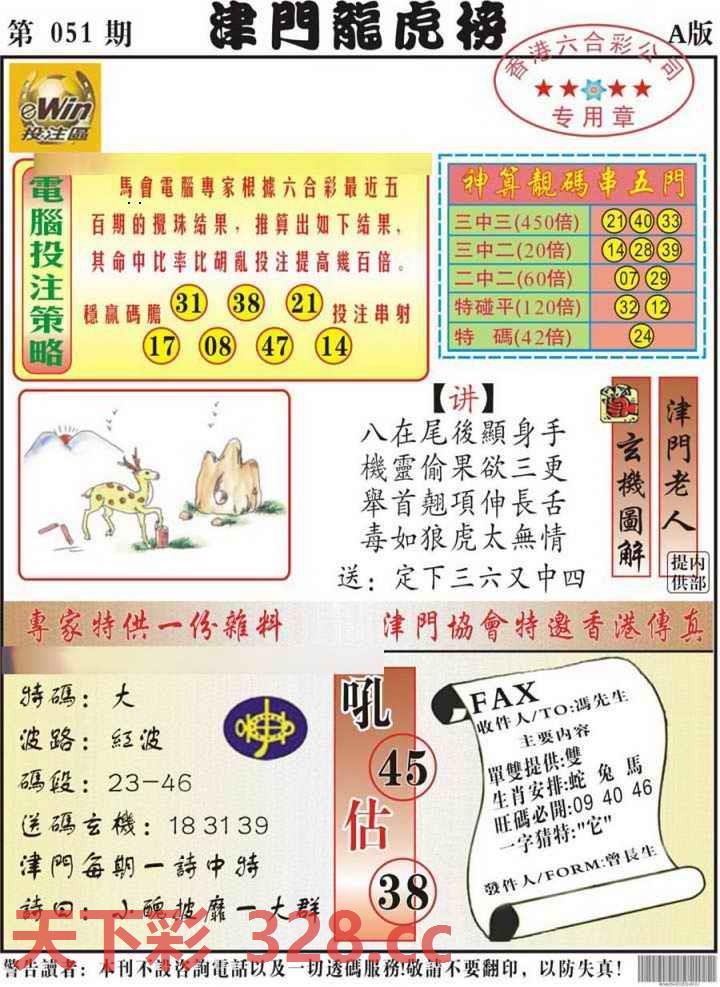 第 051 期
津門龍虎榜
A版
香港六合彩公司
专用章
eWin
投注區
電腦投注策略
馬會電腦專家根據六合彩最近五
百期的攪珠結果，推算出如下結果，
其命中比率比胡亂投注提高幾百倍。
穩贏碼膽 31 38 21 投注串射
17 08 47 14
神算靚碼串五門
三中三(450倍) 21 40 33
三中二(20倍) 14 28 39
二中二(60倍) 07 29
特碰平(120倍) 32 12
特 碼(42倍) 24
【讲】
八在尾後顯身手
機靈偷果欲三更
舉首翹項伸長舌
毒如狼虎太無情
送：定下三六又中四
玄機圖解
津門老人
内部提供
專家特供一份雜料
津門協會特邀香港傳真
特碼：大
波路：紅波
碼段：23-46
送碼玄機：18 31 39
津門每期一詩中特
詩曰：小醜披靡一大群
吼
45
估
38
FAX
收件人/TO:馮先生
主要内容
單雙提供:雙
生肖安排:蛇 兔 馬
旺碼必開:09 40 46
一字猜特:"它"
發件人/FORM:曾長生
天下彩 328.cc
警告讀者：本刊不設咨詢電話以及一切透碼服務!敬請不要翻印，以防失真!